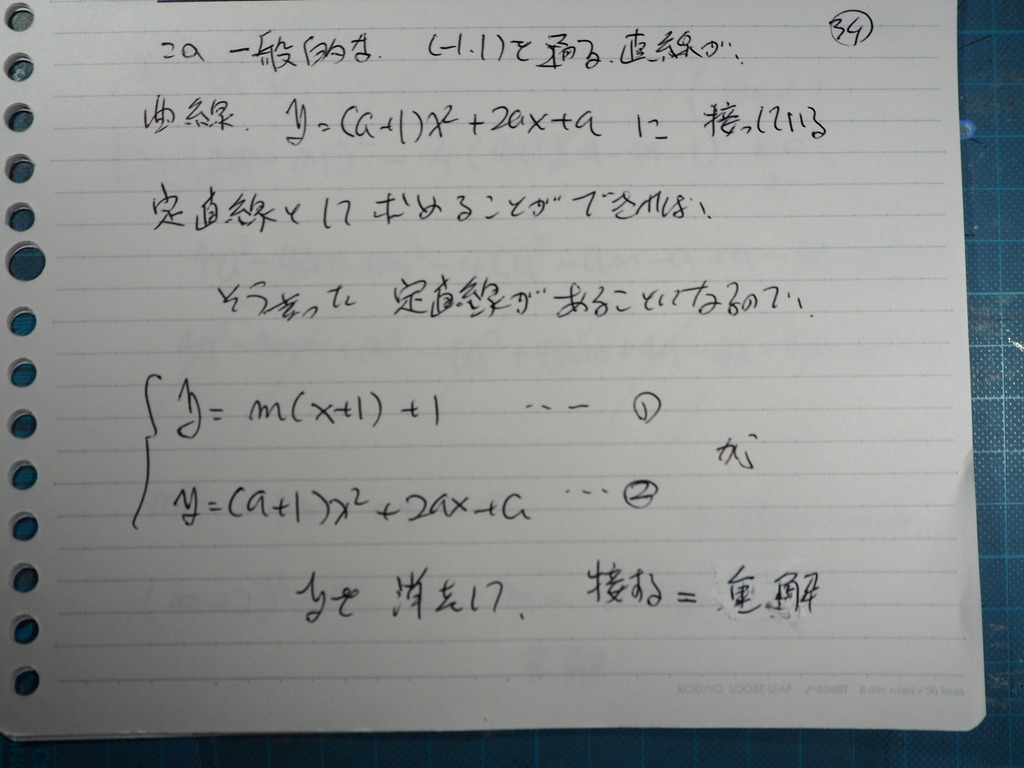 ㉞
この一般的な. (-1.1)を通る.直線が、
曲線. y=(a+1)x²+2ax+a に 接している
定直線として求めることができれば、
そう言った 定直線があることになるので、
y= m(x+1) +1 ･･･ ①
が
y=(a+1)x²+2ax+a ･･･②
yを 消去して. 接する = 重解
KOKUYO LOOSE-LEAF ノ-836BT 6 mm ruled×36 lines